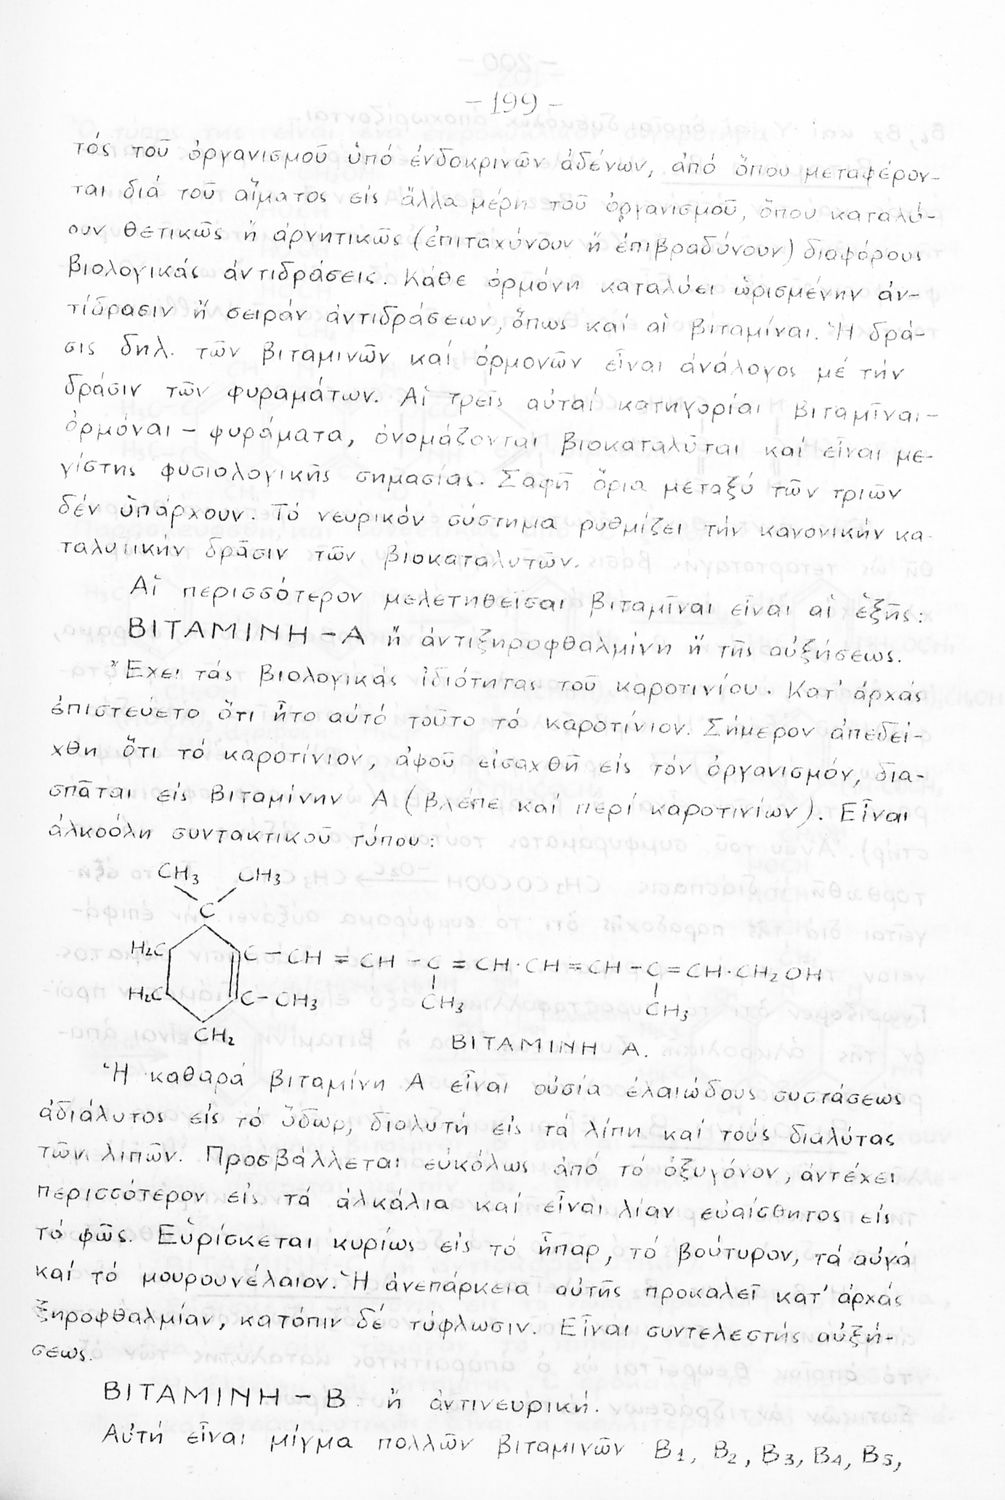 - 199 -
τός τοῦ ὀργανισμοῦ ὑπό ἐνδοκρινῶν ἀδένων, ἀπό ὅπου μεταφέρον-
ται διά τοῦ αἵματος εἰς ἄλλα μέρη τοῦ ὀργανισμοῦ, ὅπου καταλύ-
ουν θετικῶς ἤ ἀρνητικῶς (ἐπιταχύνουν ἤ ἐπιβραδύνουν) διαφόρους
βιολογικάς ἀντιδράσεις. Κάθε ὁρμόνη καταλύει ὡρισμένην ἀν-
τίδρασιν ἤ σειράν ἀντιδράσεων, ὅπως καί αἱ βιταμίναι. Ἡ δρά-
σις δηλ. τῶν βιταμινῶν καί ὁρμονῶν εἶναι ἀνάλογος μέ τήν
δράσιν τῶν φυραμάτων. Αἱ τρεῖς αὐταί κατηγορίαι βιταμῖναι-
ὁρμόναι - φυράματα, ὀνομάζονται βιοκαταλῦται καί εἶναι με-
γίστης φυσιολογικῆς σημασίας. Σαφῆ ὅρια μεταξύ τῶν τριῶν
δέν ὑπάρχουν. Τό νευρικόν σύστημα ρυθμίζει τήν κανονικήν κα-
ταλυτικήν δρᾶσιν τῶν βιοκαταλυτῶν.
Αἱ περισσότερον μελετηθεῖσαι βιταμῖναι εἶναι αἱ ἑξῆς:
ΒΙΤΑΜΙΝΗ - Α ἤ ἀντιξηροφθαλμίνη ἤ τῆς αὐξήσεως.
Ἔχει τάς βιολογικάς ἰδιότητας τοῦ καροτινίου. Κατ' ἀρχάς
ἐπιστεύετο ὅτι ἦτο αὐτό τοῦτο τό καροτίνιον. Σήμερον ἀπεδεί-
χθη ὅτι τό καροτίνιον, ἀφοῦ εἰσαχθῆ εἰς τόν ὀργανισμόν, δια-
σπᾶται εἰς βιταμίνην Α (βλέπε καί περί καροτινίων). Εἶναι
ἀλκοόλη συντακτικοῦ τύπου:
CH3 CH3
C
H2C C - CH = CH - C = CH·CH = CH - C = CH·CH2OH
H2C C - CH3 CH3 CH3
CH2
ΒΙΤΑΜΙΝΗ Α.
Ἡ καθαρά βιταμίνη Α εἶναι οὐσία ἐλαιώδους συστάσεως
ἀδιάλυτος εἰς τό ὕδωρ, διαλυτή εἰς τά λίπη καί τούς διαλύτας
τῶν λιπῶν. Προσβάλλεται εὐκόλως ἀπό τό ὀξυγόνον, ἀντέχει
περισσότερον εἰς τά ἀλκάλια καί εἶναι λίαν εὐαίσθητος εἰς
τό φῶς. Εὑρίσκεται κυρίως εἰς τό ἧπαρ, τό βούτυρον, τά αὐγά
καί τό μουρουνέλαιον. Ἡ ἀνεπάρκεια αὐτῆς προκαλεῖ κατ' ἀρχάς
ξηροφθαλμίαν, κατόπιν δέ τύφλωσιν. Εἶναι συντελεστής αὐξή-
σεως.
ΒΙΤΑΜΙΝΗ - Β ἤ ἀντινευρική.
Αὐτή εἶναι μῖγμα πολλῶν βιταμινῶν Β1, Β2, Β3, Β4, Β5,